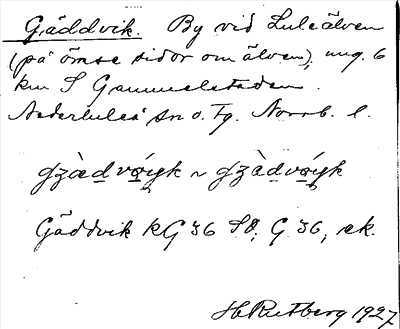 Gäddvik. By vid Luleälven
(på ömse sidor om älven), ung. 6
km S Gammelstaden.
Nederluleå sn o. Tg. Norrb. l.
Gäddvik KG 36 SO; G 36, ek.
H Rutberg 1927